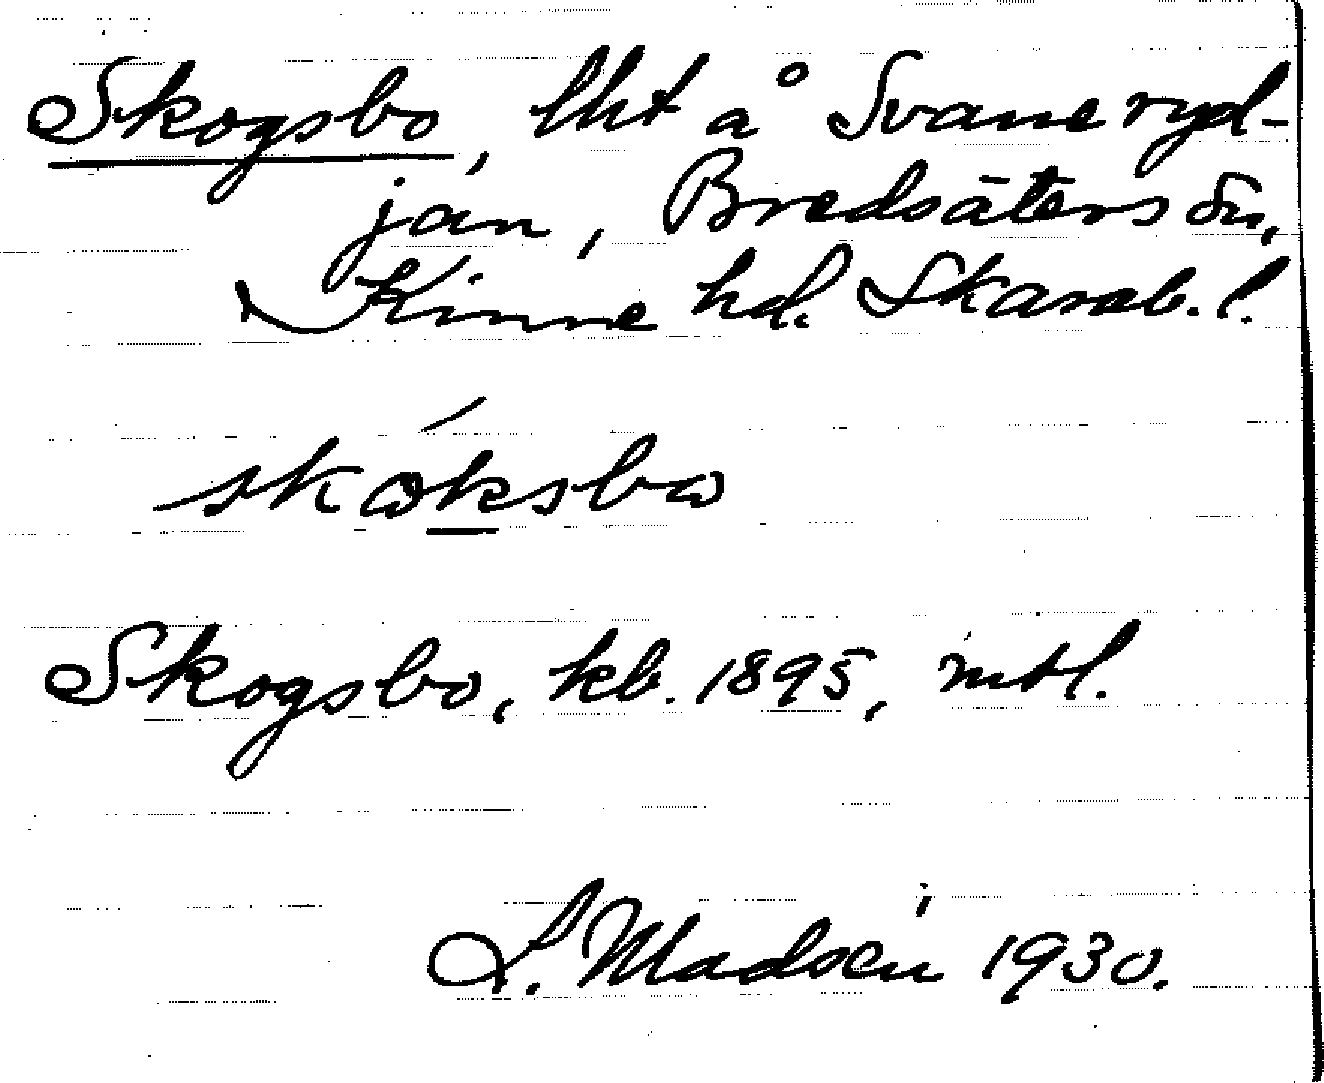 Skogsbo, lht å Svaneryd-
jan, Bredsäters sn,
Kinne hd. Skarab. l.
skóksbo
Skogsbo, kb. 1895, mtl.
L. Madsén 1930.